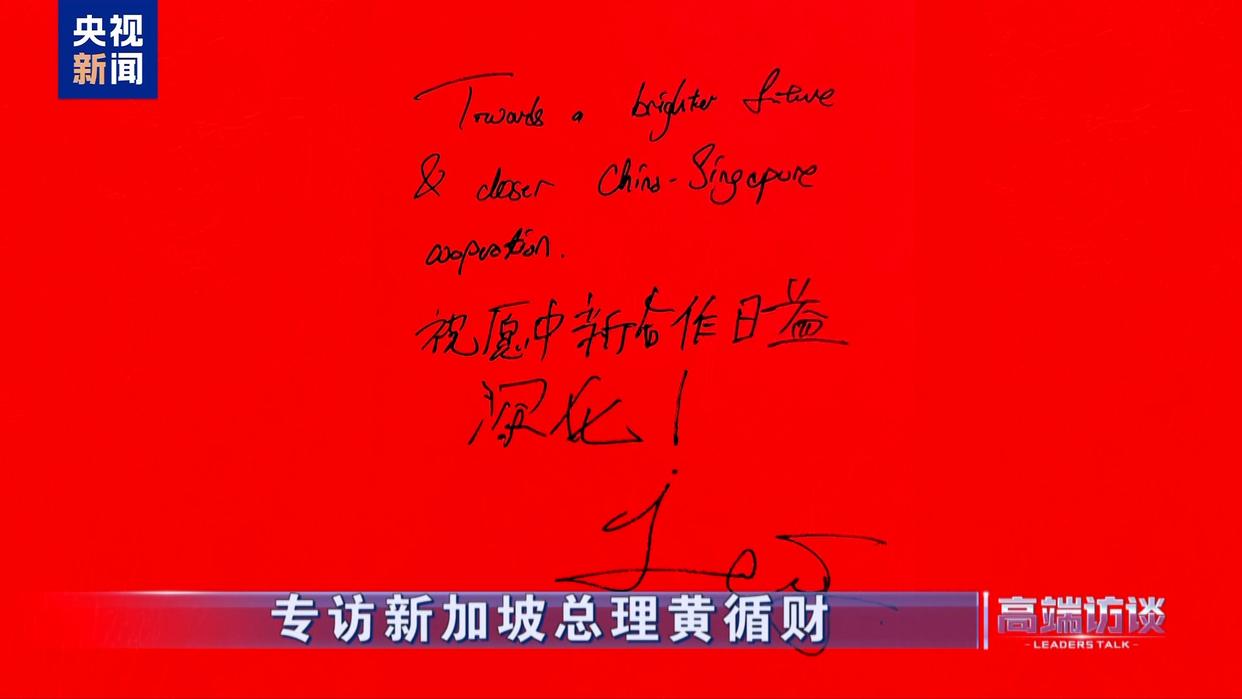 央视
新闻
Towards a brighter future
& closer China-Singapore
cooperation.
祝愿中新合作日益
深化！
专访新加坡总理黄循财
高端访谈
-LEADERS TALK-